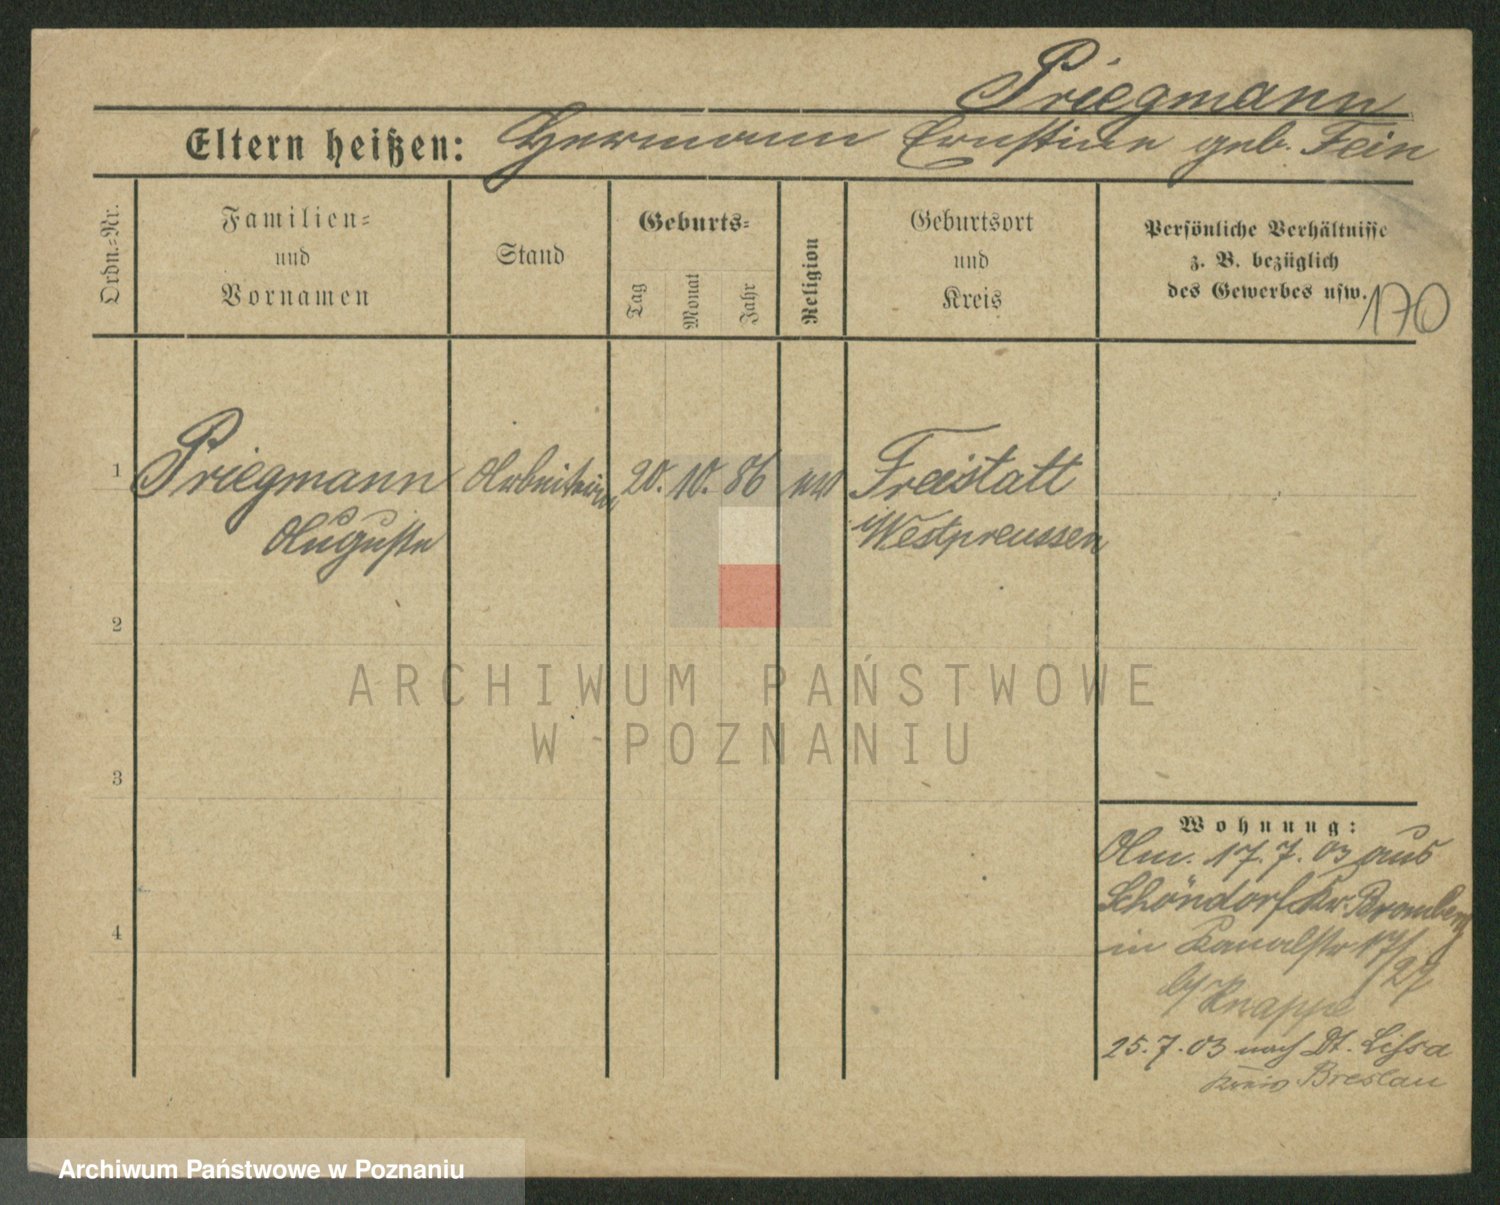 Priegmann
Eltern heißen: Hermann Ernstine geb. Fein
Ordn.-Nr.
Familien-
und
Vornamen
Stand
Geburts-
Tag
Monat
Jahr
Religion
Geburtsort
und
Kreis
Persönliche Verhältnisse
z. B. bezüglich
des Gewerbes usw.
170
1
Priegmann
Auguste
Arbeiterin
20. 10. 86
Freistatt
i/Westpreussen
2
3
4
Wohnung:
Am. 17. 7. 03 aus
Schöndorf Kr. Bromberg
in Kanalstr 17/
/27
b/ Knappe
25. 7. 03 nach Dt. Lissa
Kreis Breslau
ARCHIWUM PAŃSTWOWE
W POZNANIU
Archiwum Państwowe w Poznaniu